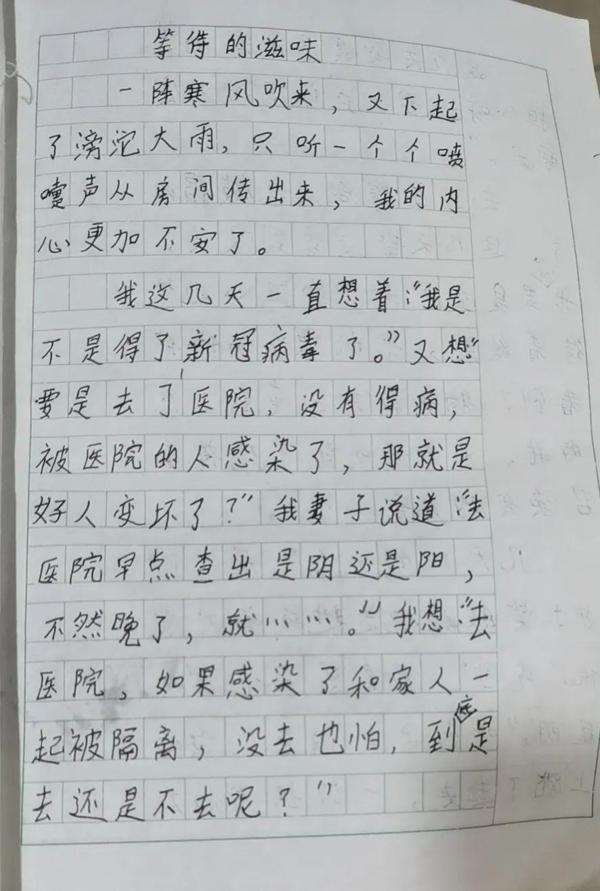 等待的滋味
一阵寒风吹来，又下起
了滂沱大雨，只听一个个喷
嚏声从房间传出来，我的内
心更加不安了。
我这几天一直想着：“我是
不是得了新冠病毒了。”又想“
要是去了医院，没有得病，
被医院的人感染了，那就是
好人变坏了？”我妻子说道：“去
医院早点查出是阴还是阳，
不然晚了，就……。”我想：“去
医院，如果感染了和家人一
起被隔离，没去也怕，到底是
去还是不去呢？”